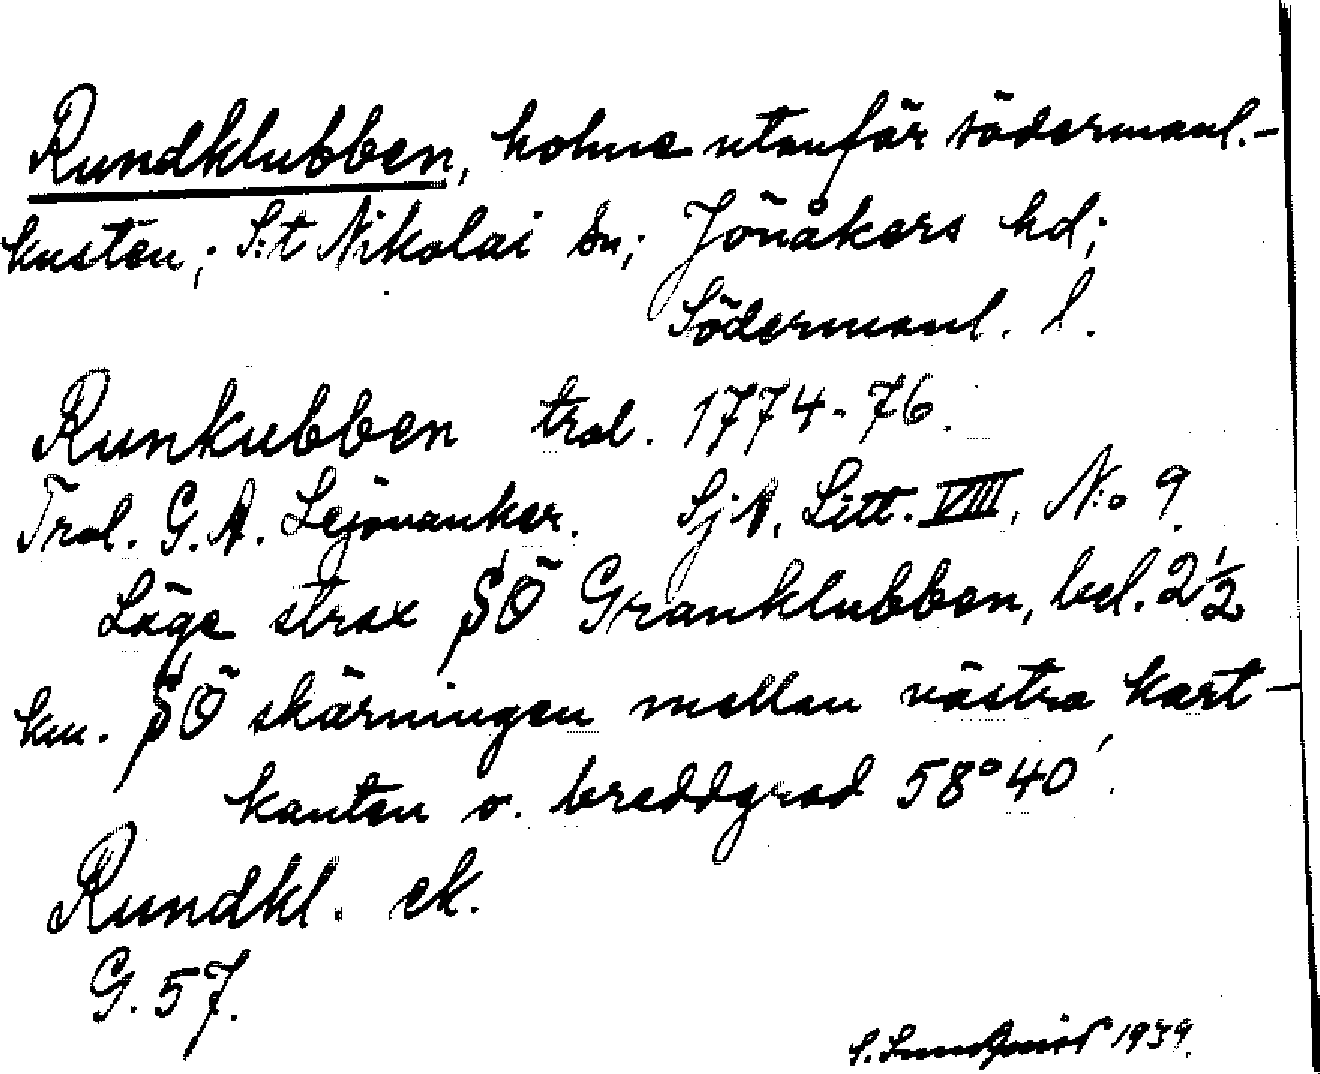 Rundklubben, holme utanför södermanl.-
kusten; S:t Nikolai sn; Jönåkers hd;
Södermanl. l.
Runkubben trol. 1774-76.
Trol. G. A. Lejonanker. SjA. Litt. VIII, N:o 9.
Läge strax SÖ Granklubben, bel. 2½
km. SÖ skärningen mellan västra kart-
kanten o. breddgrad 58°40′.
Rundkl. ek.
G. 57.
S. Lundqvist 1939.